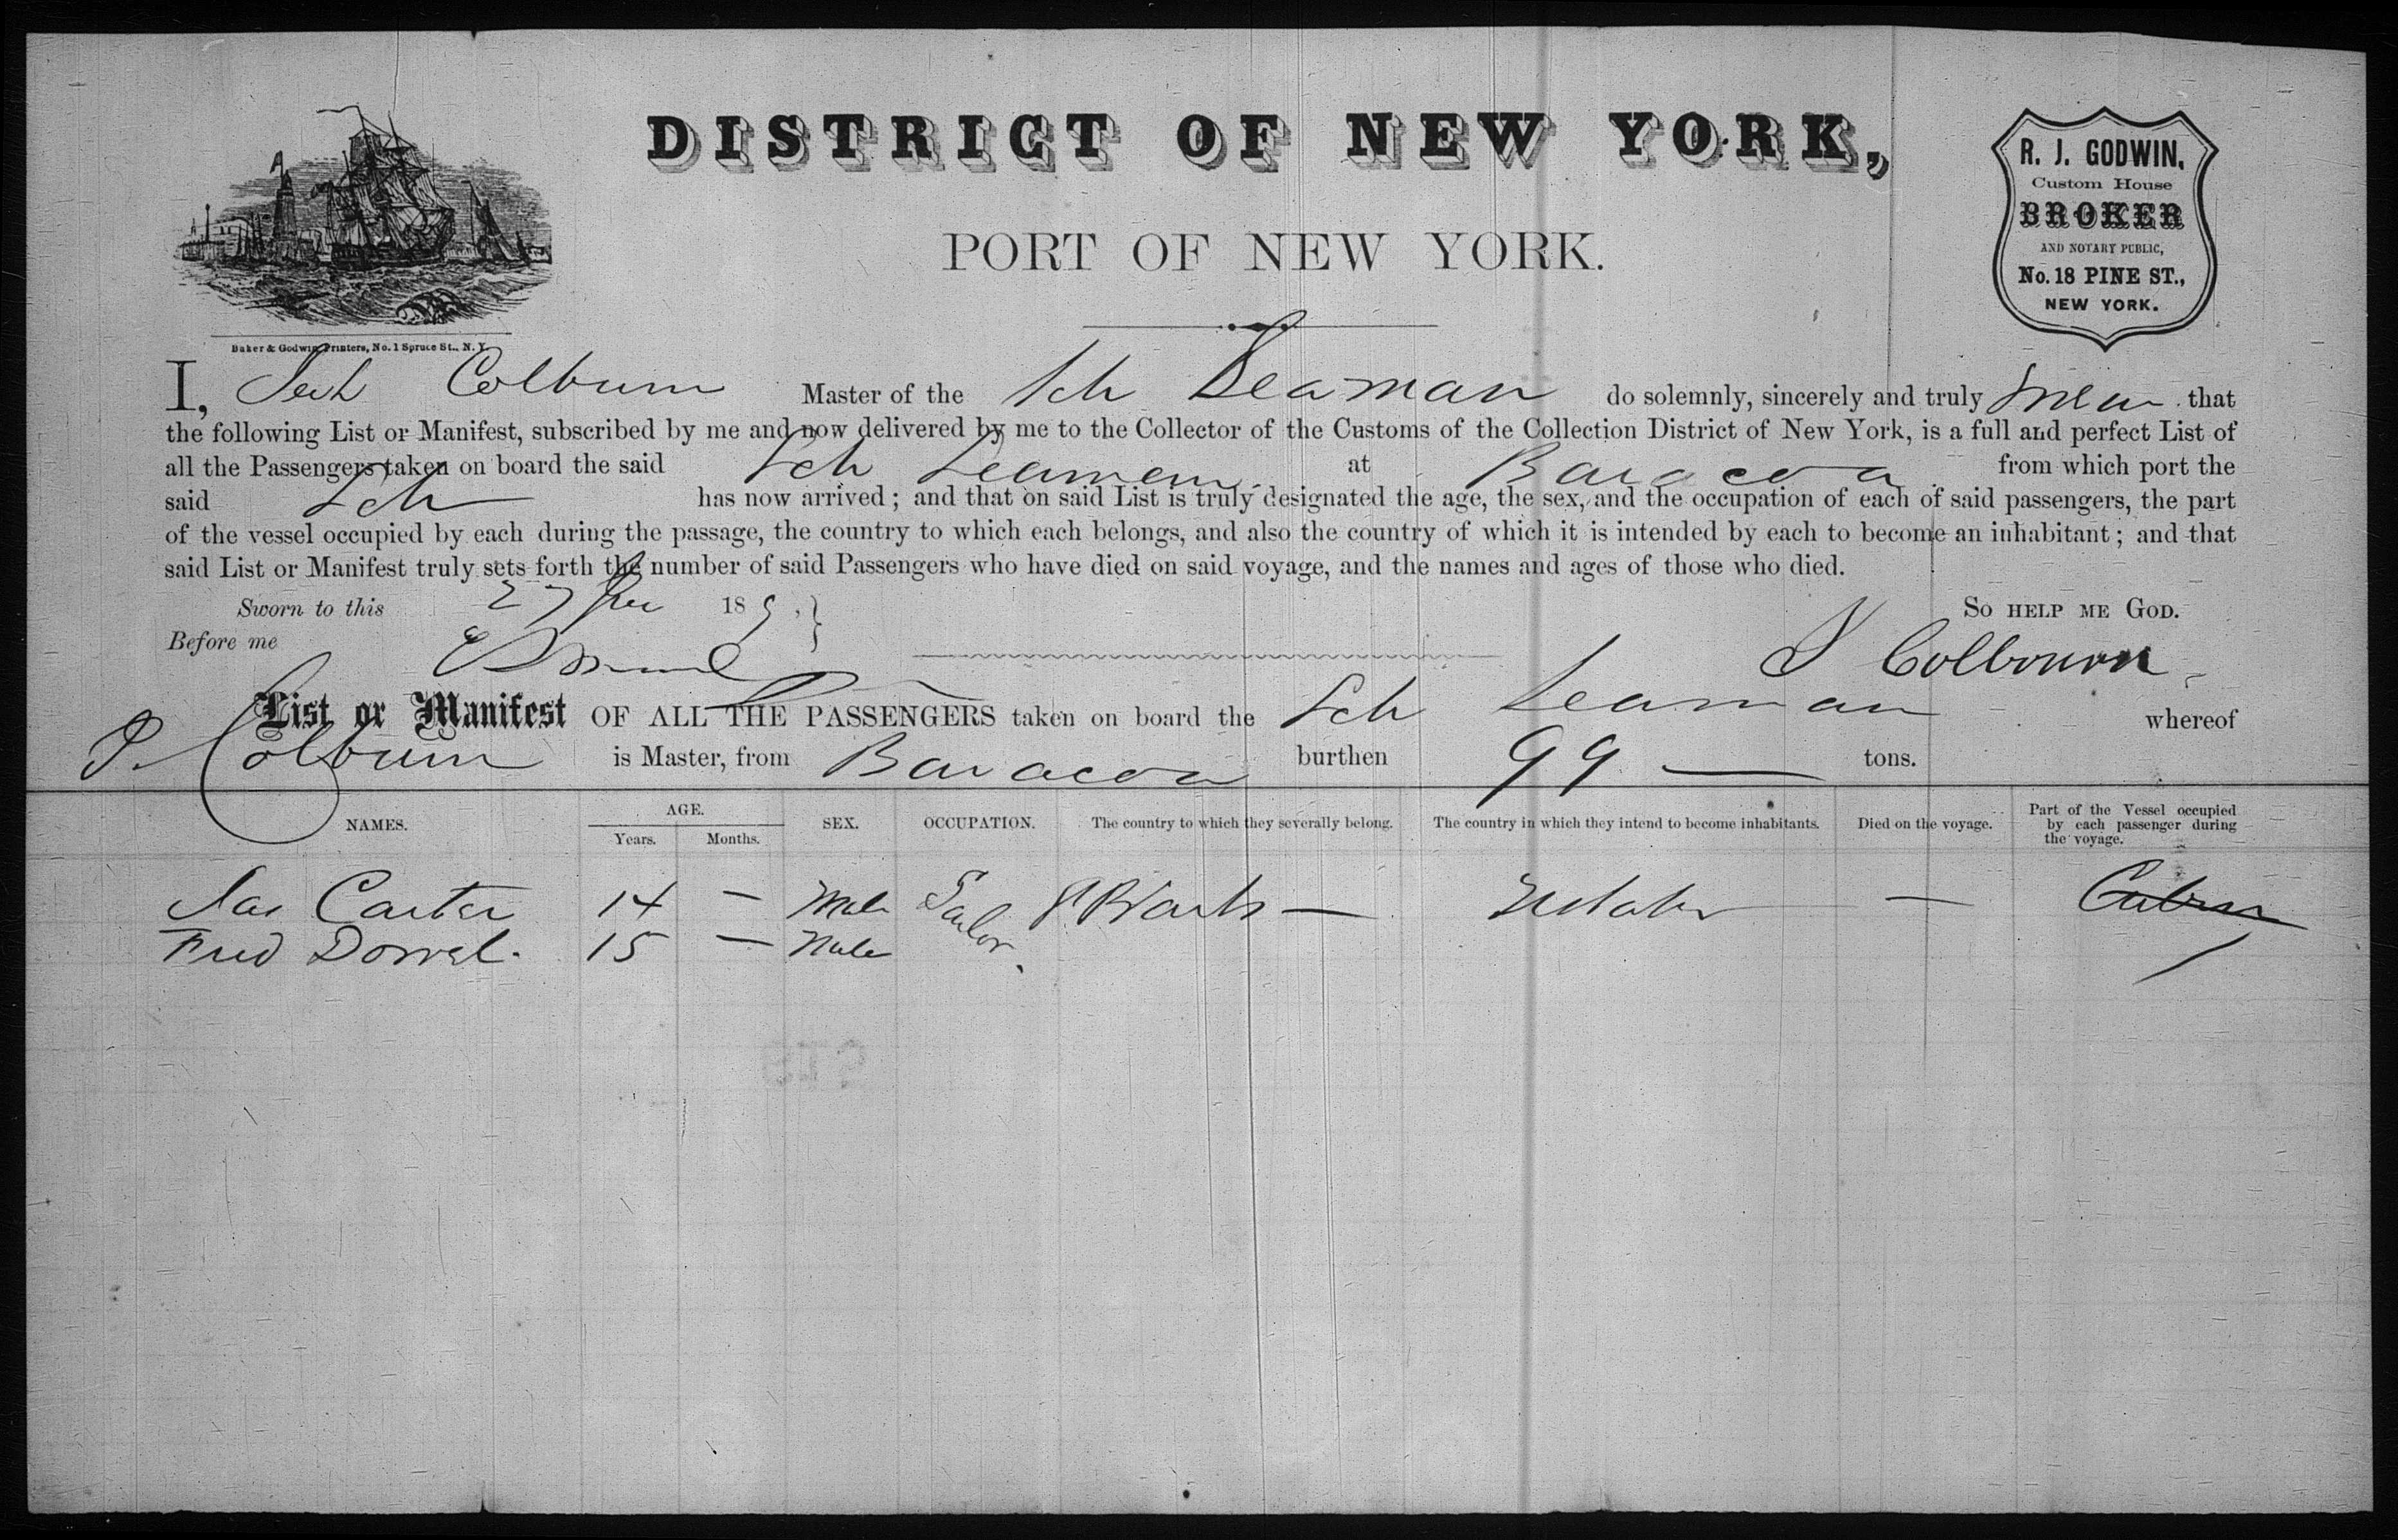 DISTRICT OF NEW YORK,
PORT OF NEW YORK.
R. J. GODWIN,
Custom House
BROKER
AND NOTARY PUBLIC,
No. 18 PINE ST.,
NEW YORK.
Baker & Godwin, Printers, No. 1 Spruce St., N. Y.
I, Colburn Master of the Sch Seaman do solemnly, sincerely and truly swear that
the following List or Manifest, subscribed by me and now delivered by me to the Collector of the Customs of the Collection District of New York, is a full and perfect List of
all the Passengers taken on board the said Sch Seaman at Baracoa from which port the
said Sch has now arrived; and that on said List is truly designated the age, the sex, and the occupation of each of said passengers, the part
of the vessel occupied by each during the passage, the country to which each belongs, and also the country of which it is intended by each to become an inhabitant; and that
said List or Manifest truly sets forth the number of said Passengers who have died on said voyage, and the names and ages of those who died.
Sworn to this 27 18 9, SO HELP ME GOD.
Before me J Colbourn
List or Manifest OF ALL THE PASSENGERS taken on board the Sch Seaman whereof
J. Colburn is Master, from Baracoa burthen 99 — tons.
NAMES. AGE. Years. Months. SEX. OCCUPATION. The country to which they severally belong. The country in which they intend to become inhabitants. Died on the voyage. Part of the Vessel occupied by each passenger during the voyage.
Jas Carter 14 — Male Sailor — — Cabin
Fred Dorrel. 15 — Male